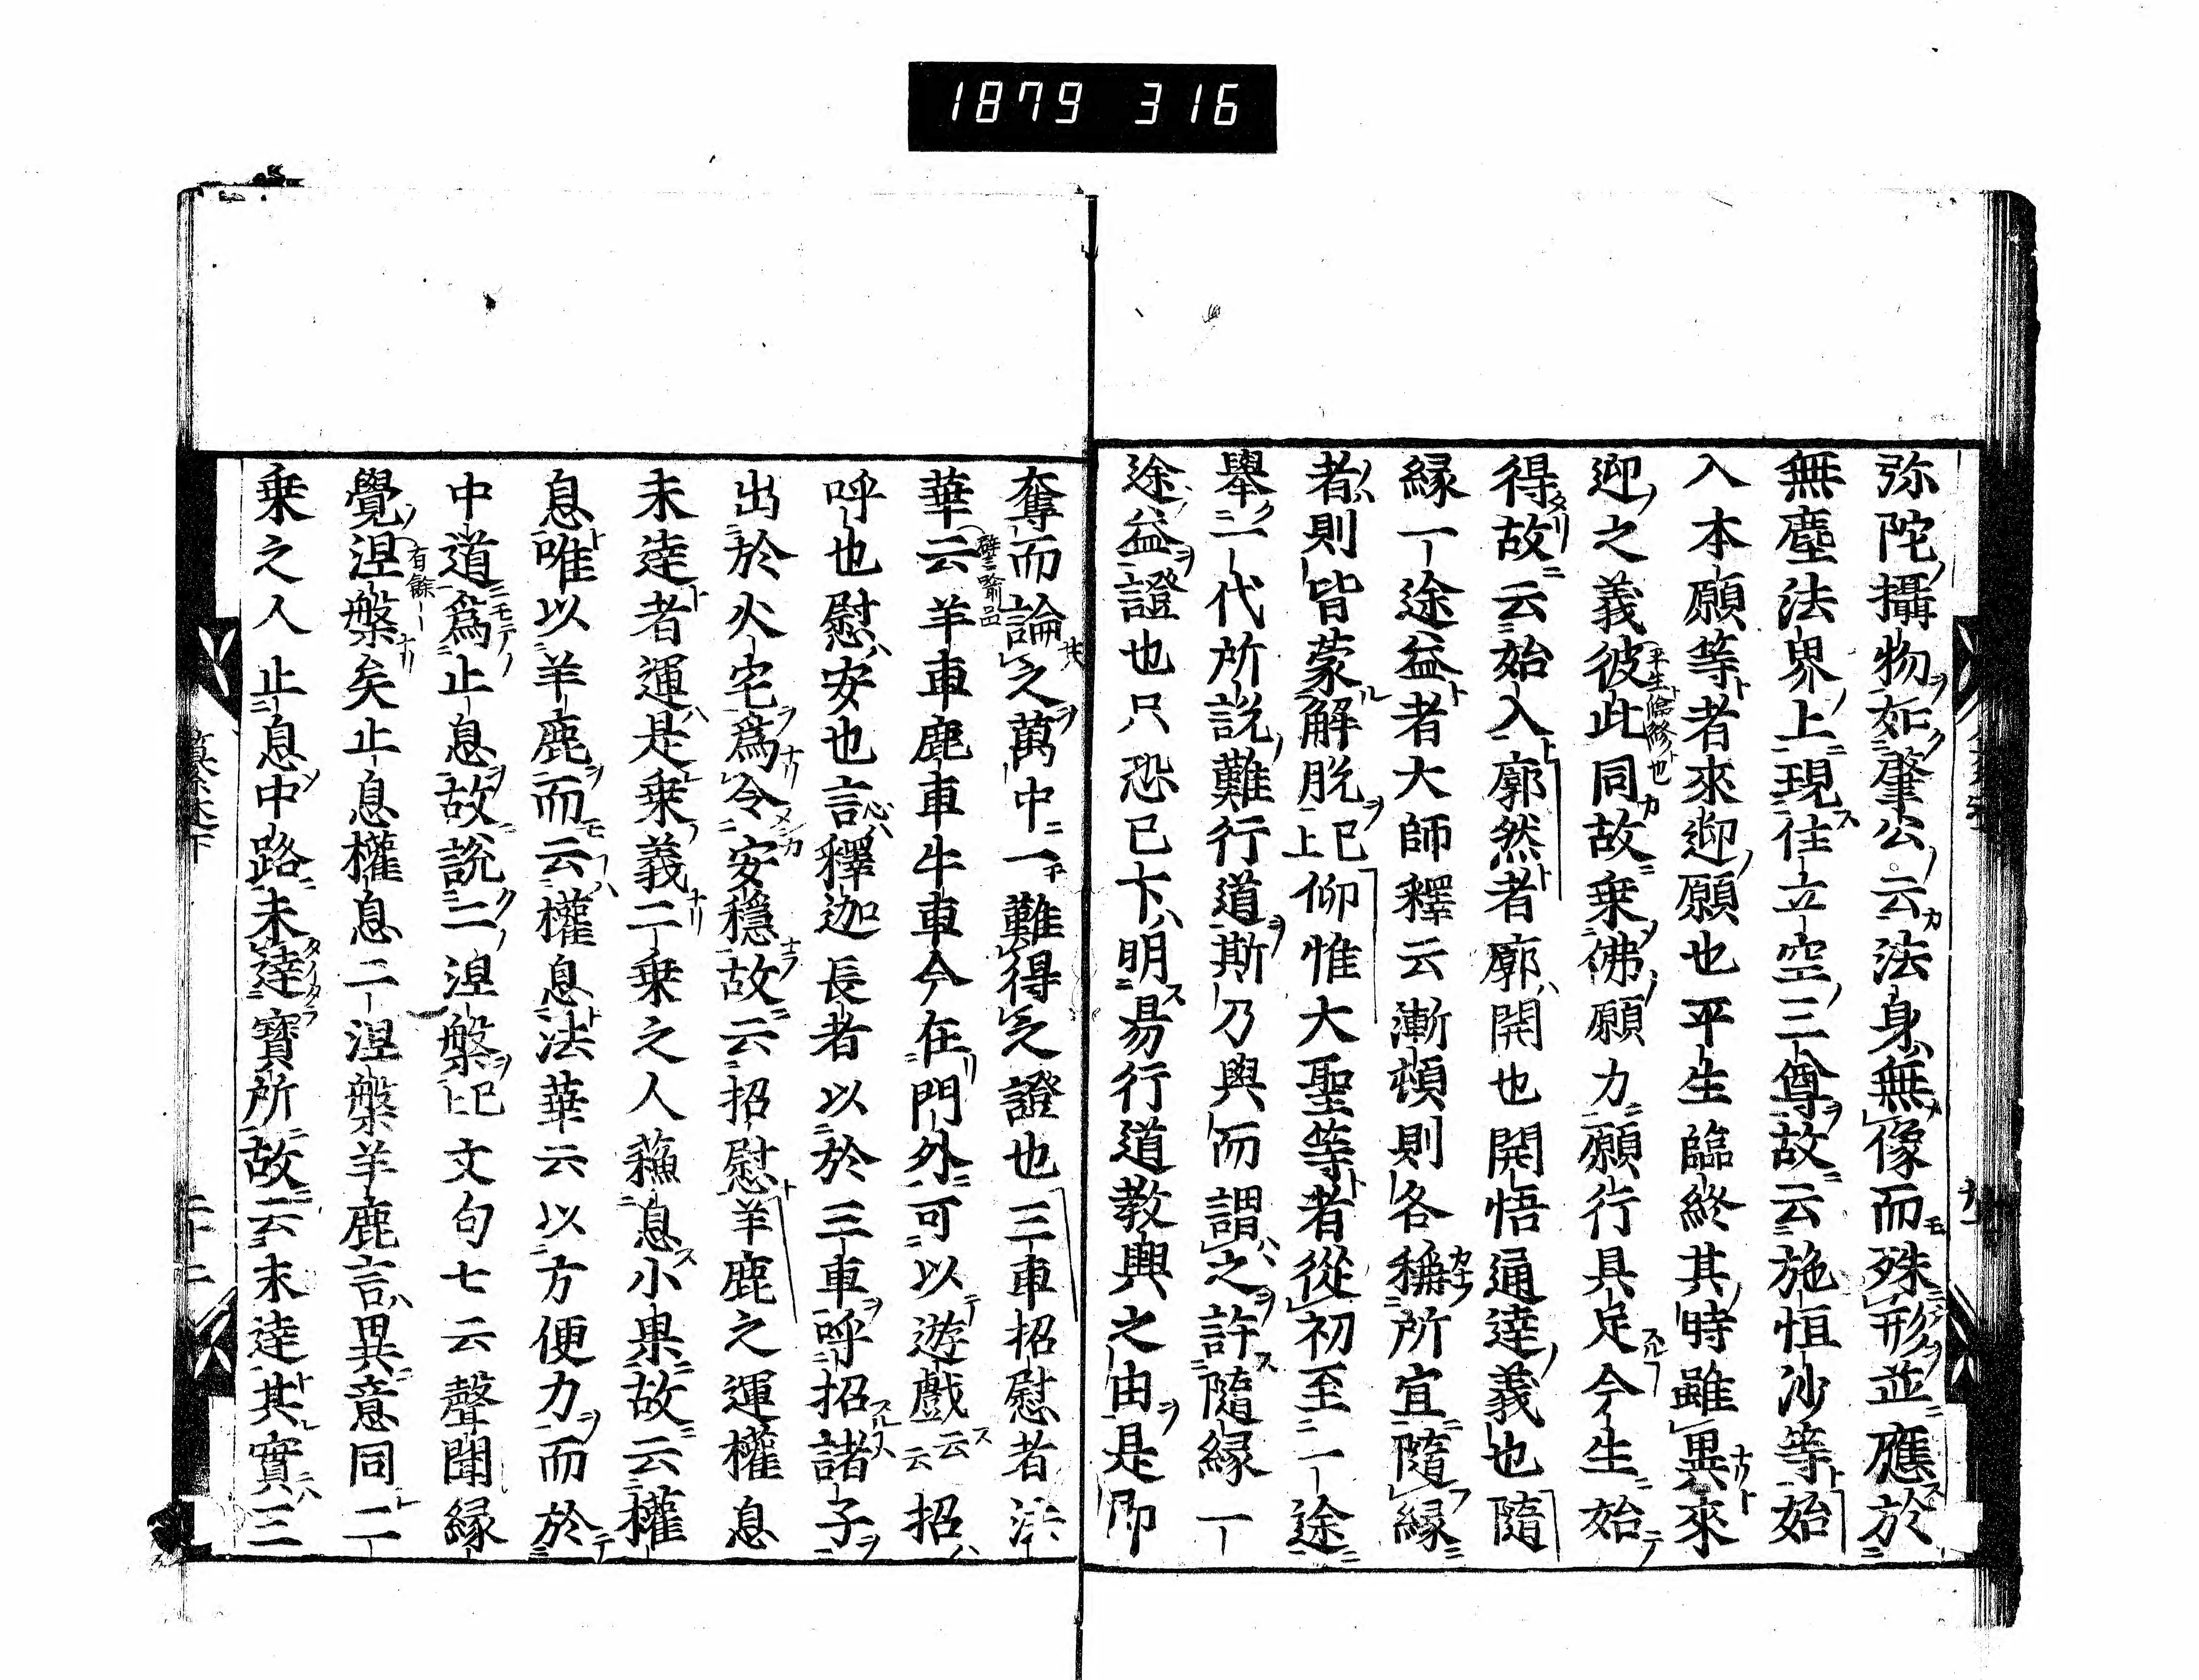 1879 316
弥陀攝物如肇公云法身無像而殊形並應於
無塵法界上現住立空三尊故云施恒沙等始
入本願等者來迎願也平生臨終其時雖異來
迎之義彼此同故乗佛願力願行具足今生始
得故云始入廓然者廓開也開悟通達義也隨
縁一途益者大師釋云漸頓則各稱所宜隨縁
者則皆蒙解脱已上仰惟大聖等者從初至一途
擧一代所説難行道斯乃與而謂之許隨縁一
途益證也只恐已下明易行道教興之由是即
奪而論之萬中一難得之證也三車招慰者法
華云譬喩品羊車鹿車牛車今在門外可以遊戲云云招
呼也慰安也言釋迦長者以於三車呼招諸子
出於火宅爲令安穩故云招慰羊鹿之運權息
未達者運是乗義二乗之人蘓息小果故云權
息唯以羊鹿而云權息法華云以方便力而於
中道爲止息故説二涅槃已上文句七云聲聞縁
覺涅槃有餘矣止息權息二涅槃羊鹿言異意同二
乗之人止息中路未達寳所故云未達其實三